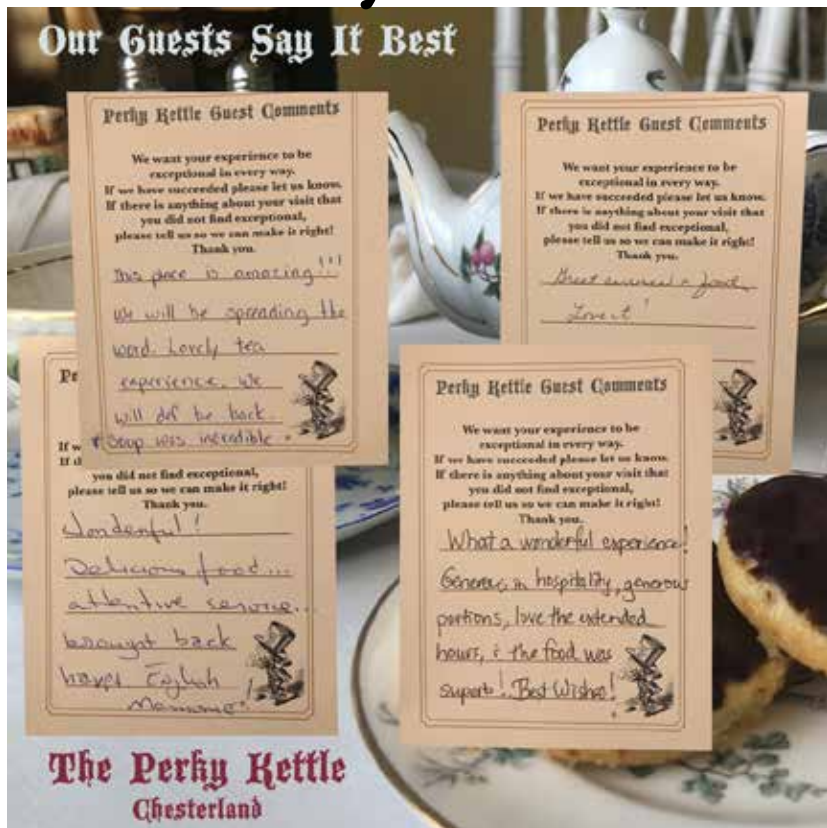 Our Guests Say It Best
Perky Kettle Guest Comments
We want your experience to be
exceptional in every way.
If we have succeeded please let us know.
If there is anything about your visit that
you did not find exceptional,
please tell us so we can make it right!
Thank you.
This place is amazing!!!
We will be spreading the
word. Lovely tea
experience. We
will def be back.
Soup was incredible
Perky Kettle Guest Comments
We want your experience to be
exceptional in every way.
If we have succeeded please let us know.
If there is anything about your visit that
you did not find exceptional,
please tell us so we can make it right!
Thank you.
Great service & food
Love it!
Pe
If w
If th
you did not find exceptional,
please tell us so we can make it right!
Thank you.
Wonderful!
Delicious food...
attentive service...
brought back
English
!
Perky Kettle Guest Comments
We want your experience to be
exceptional in every way.
If we have succeeded please let us know.
If there is anything about your visit that
you did not find exceptional,
please tell us so we can make it right!
Thank you.
What a wonderful experience!
Generous in hospitality, generous
portions, love the extended
hours, & the food was
superb! Best Wishes!
The Perky Kettle
Chesterland